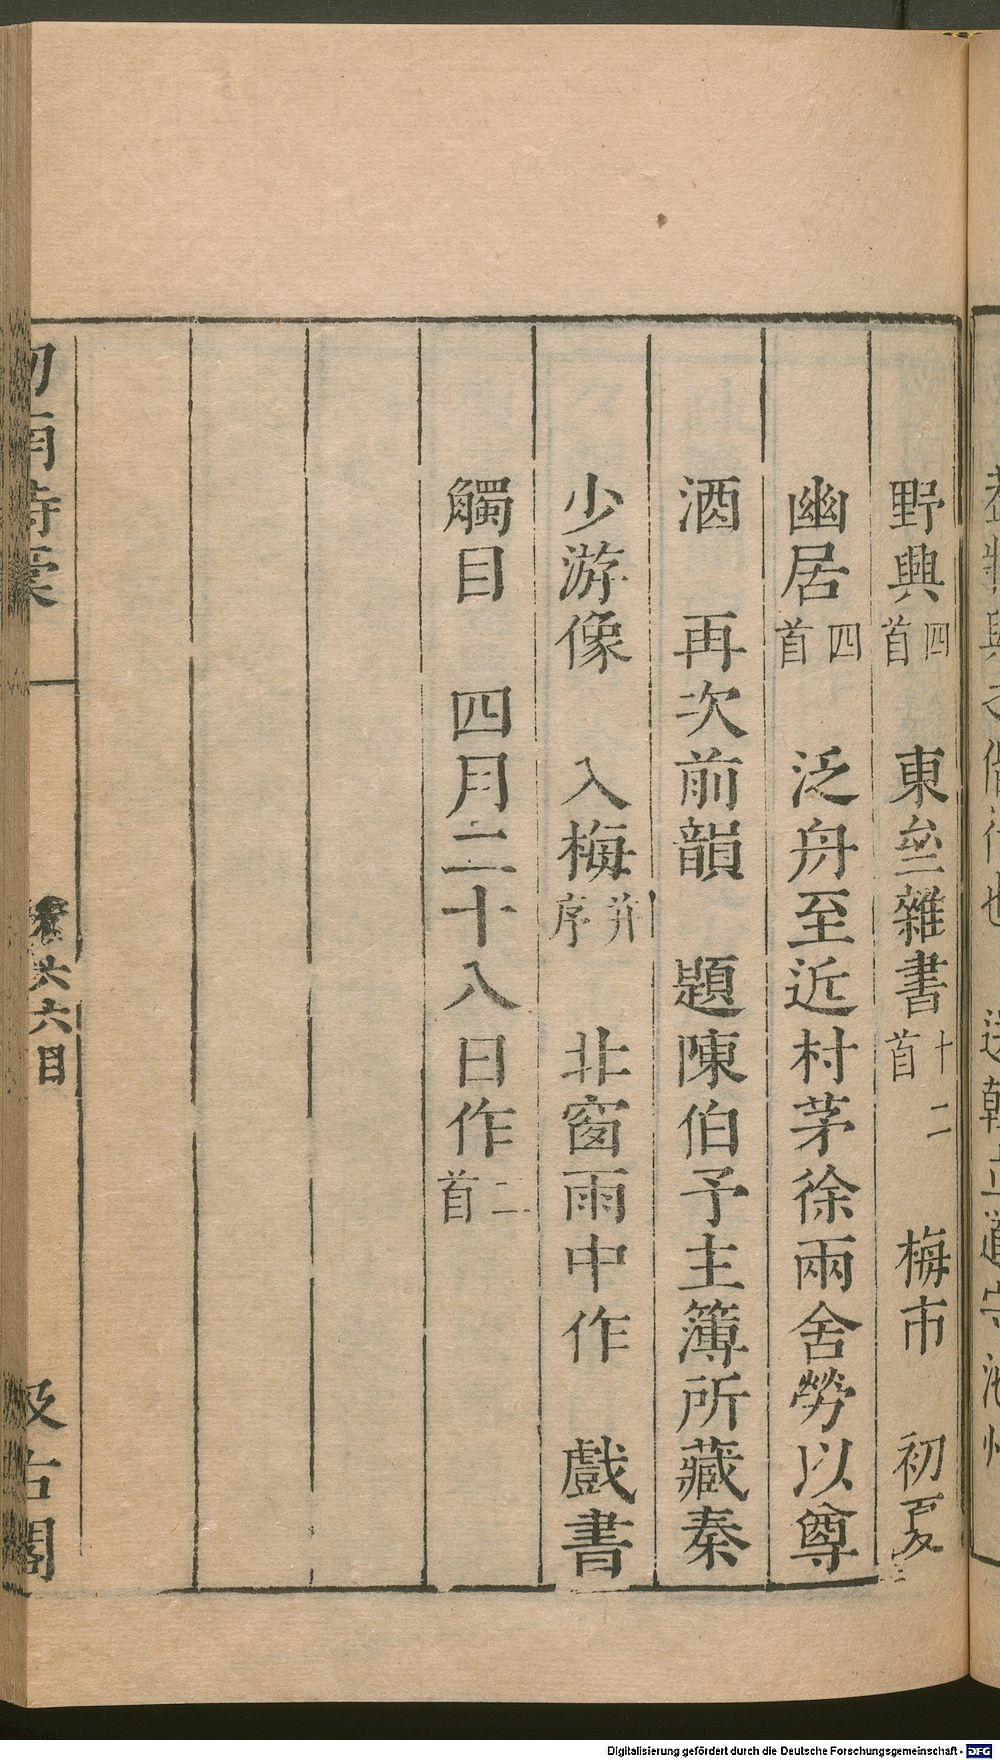 野興四首　東壑雜書十二首　梅市　初夏
幽居四首　泛舟至近村茅徐兩舍勞以尊
酒　再次前韻　題陳伯予主簿所藏秦
少游像　入梅并序　北窗雨中作　戲書
觸目　四月二十八日作二首
劒南詩稾　卷六六目　汲古閣
Digitalisierung gefördert durch die Deutsche Forschungsgemeinschaft - DFG